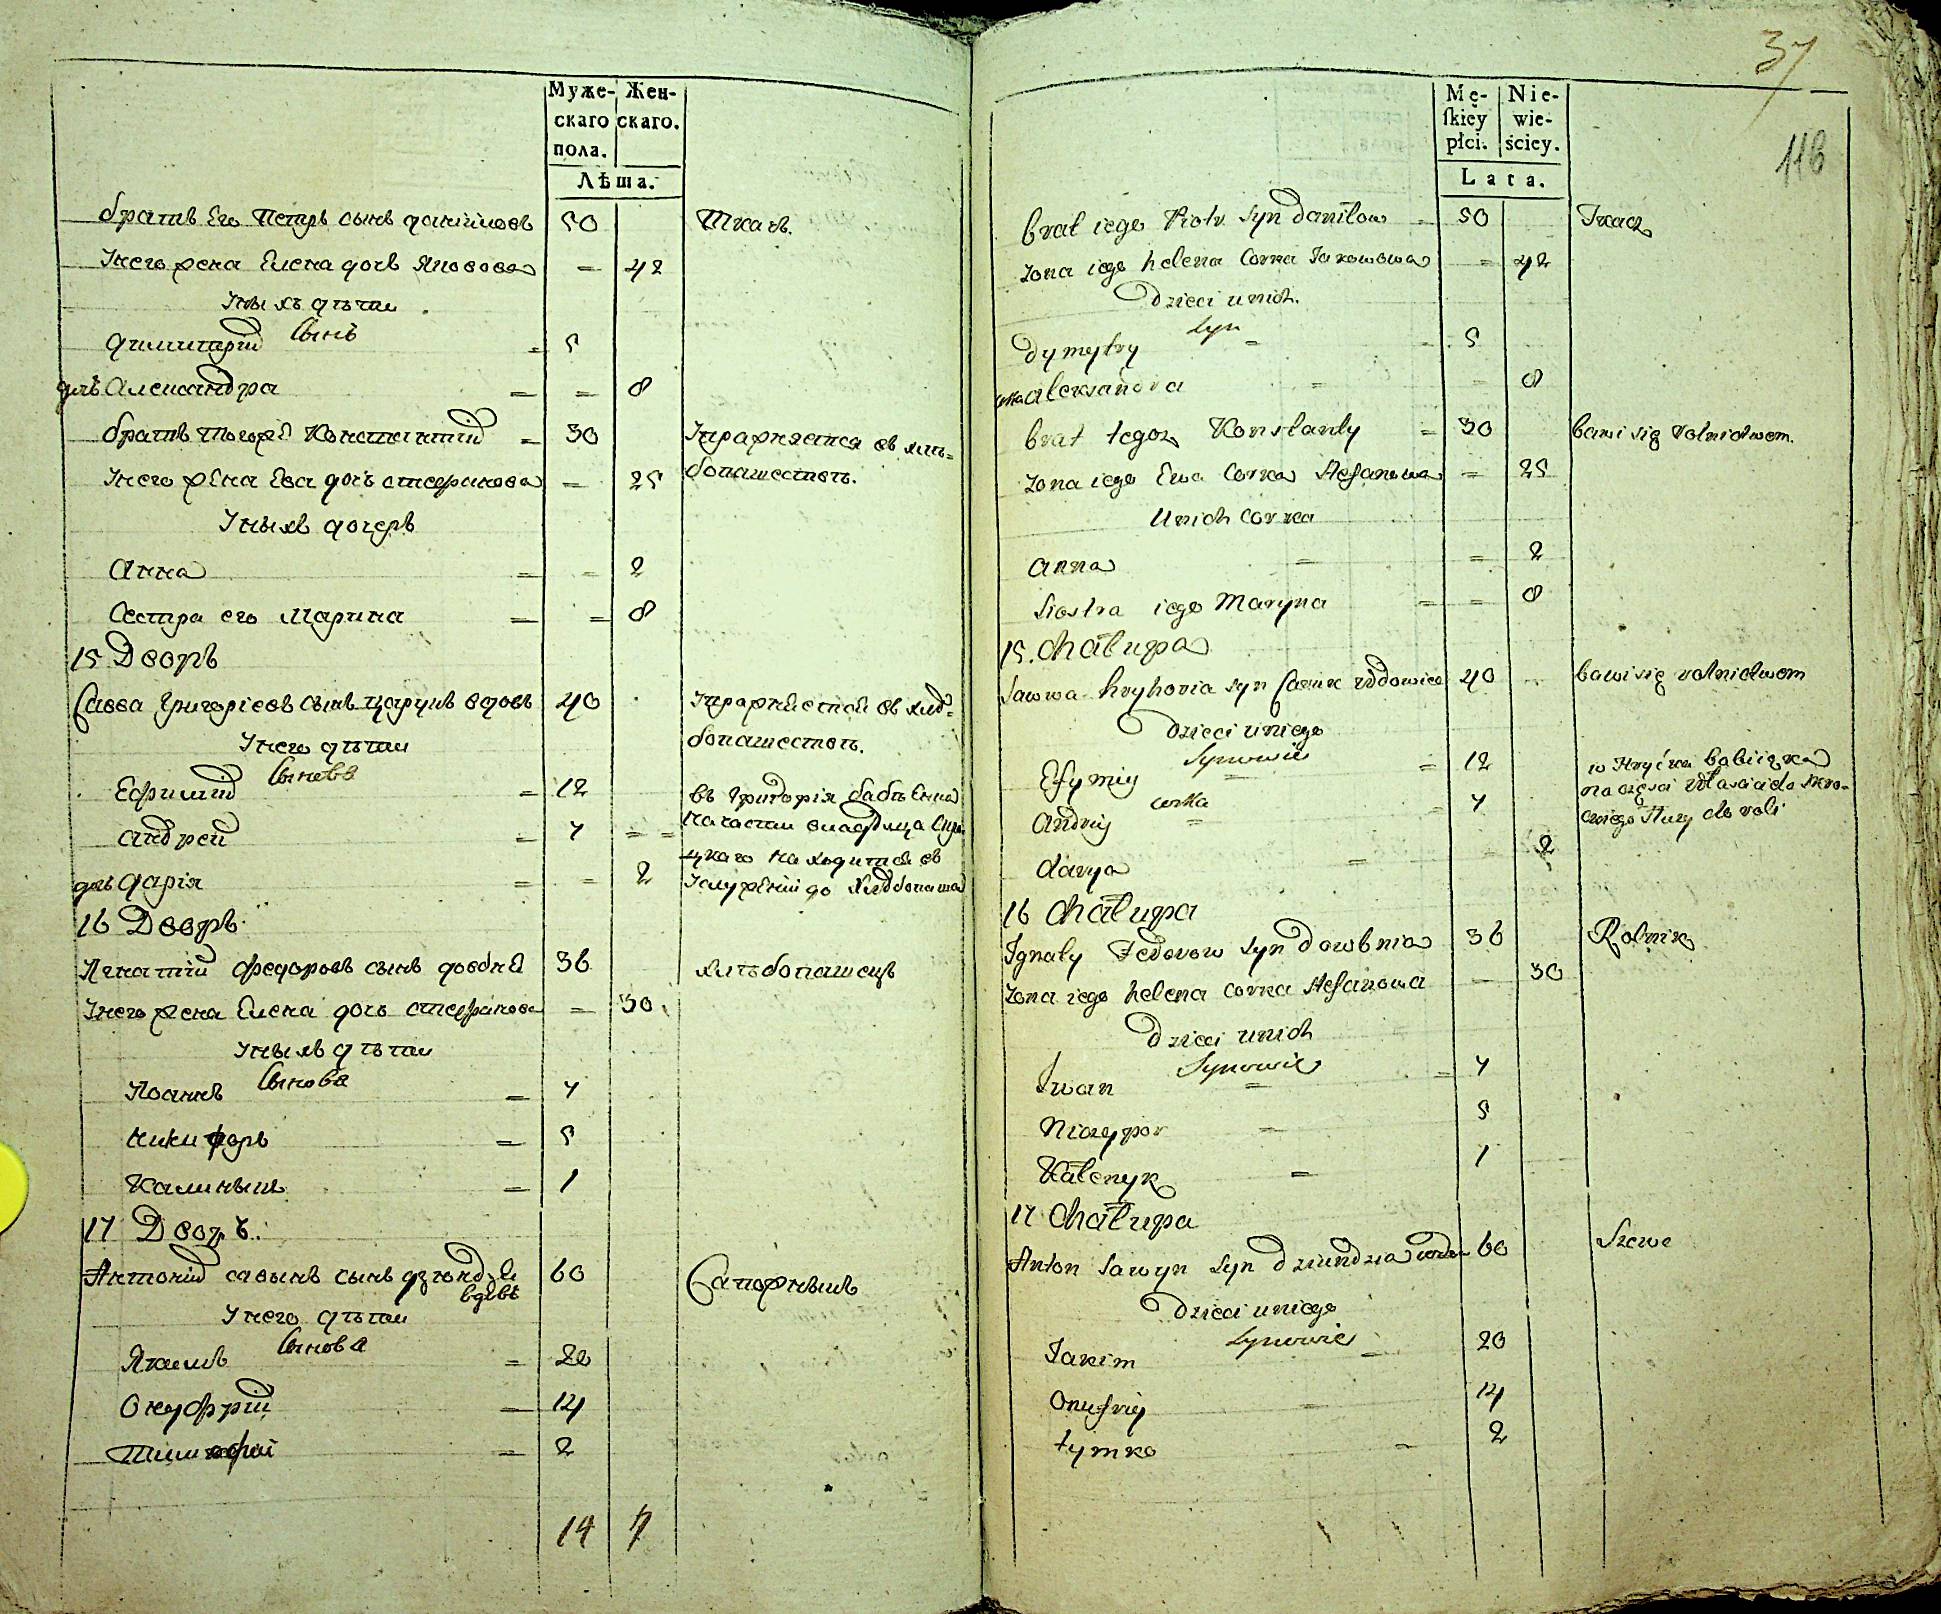 Муже- Жен-
скаго скаго.
пола.
Лѣта.
братъ Его Петръ сынъ даниiловъ 50 Ткачъ.
Унего жена Елена дочь Яковова = 42
Унихъ дѣти
Сынъ
димитрiй = 5
дчь Александра = = 8
братъ тогожъ Констант́iй = 30 Упражняется въ хлѣ=
Унего жена Ева дочь стефанова = 25 бопашествѣ.
Унихъ дочерь
Анна = = 2
Сестра его Марина = = 8
15 Дворъ
Савва Григорiевъ сынъ царукъ вдовъ 40 Упражняется въ хлѣ=
Унего дѣти бопашествѣ.
Сынова
Ефимiй = 12 въ Григорiя
Андрей = 7 = = на части владѣлца
дчь дарiя = = 2 находится въ
16 Дворъ
Игнатiй Федоровъ сынъ довбня 36 хлѣбопашецъ
Унего жена Елена дочь стефанова = 30
Унихъ дѣти
Сынова
Иоаннъ = 7
Никифоръ = 5
Калиныкъ = 1
17 Дворъ.
Антонiй савынъ сынъ дзюндзя 60 Сапожныкъ
вдовъ
Унего дѣти
Сынова
Якимъ = 20
Онуфрiй = 14
Тимофiй = 2
14 7
37
118
Mę- Nie-
ſkiey wie-
płci. ściey.
Lata.
brat iego Piotr syn daniłow = 50 Tkacz
Zona iego helena Corka Jakowowa = 42
Dzieci unich.
syn
Dymytry = = 5
crka alexandra = = 8
brat tegoz Konstanty = 30 bawi się rolnictwem.
Zona iego Ewa Corka Stefanowa = 25
Unich corka
anna = = 2
Siostra iego Maryna = = 8
15. Chałupa
Sawwa hryhoria syn Caruk wdowiec 40 bawi się rolnictwem
Dzieci uniego
Synowie
Efymiy = = 12 w Hryćka
corka
Andriy = = 7 na częsci
darya = 2
16 Chałupa
Ignaty Fedorow syn dowbnia 36 Rolnik
Zona iego helena corka Stefanowa = 30
Dzieci unich
Synowie
Iwan = = 7
Niczypor = 5
Kałenyk = 1
17 Chałupa
Anton Sawyn syn dziundzia wdow 60 Szewc
Dzieci uniego
Synowie
Jakim = 20
Onufriy = 14
tymko = 2